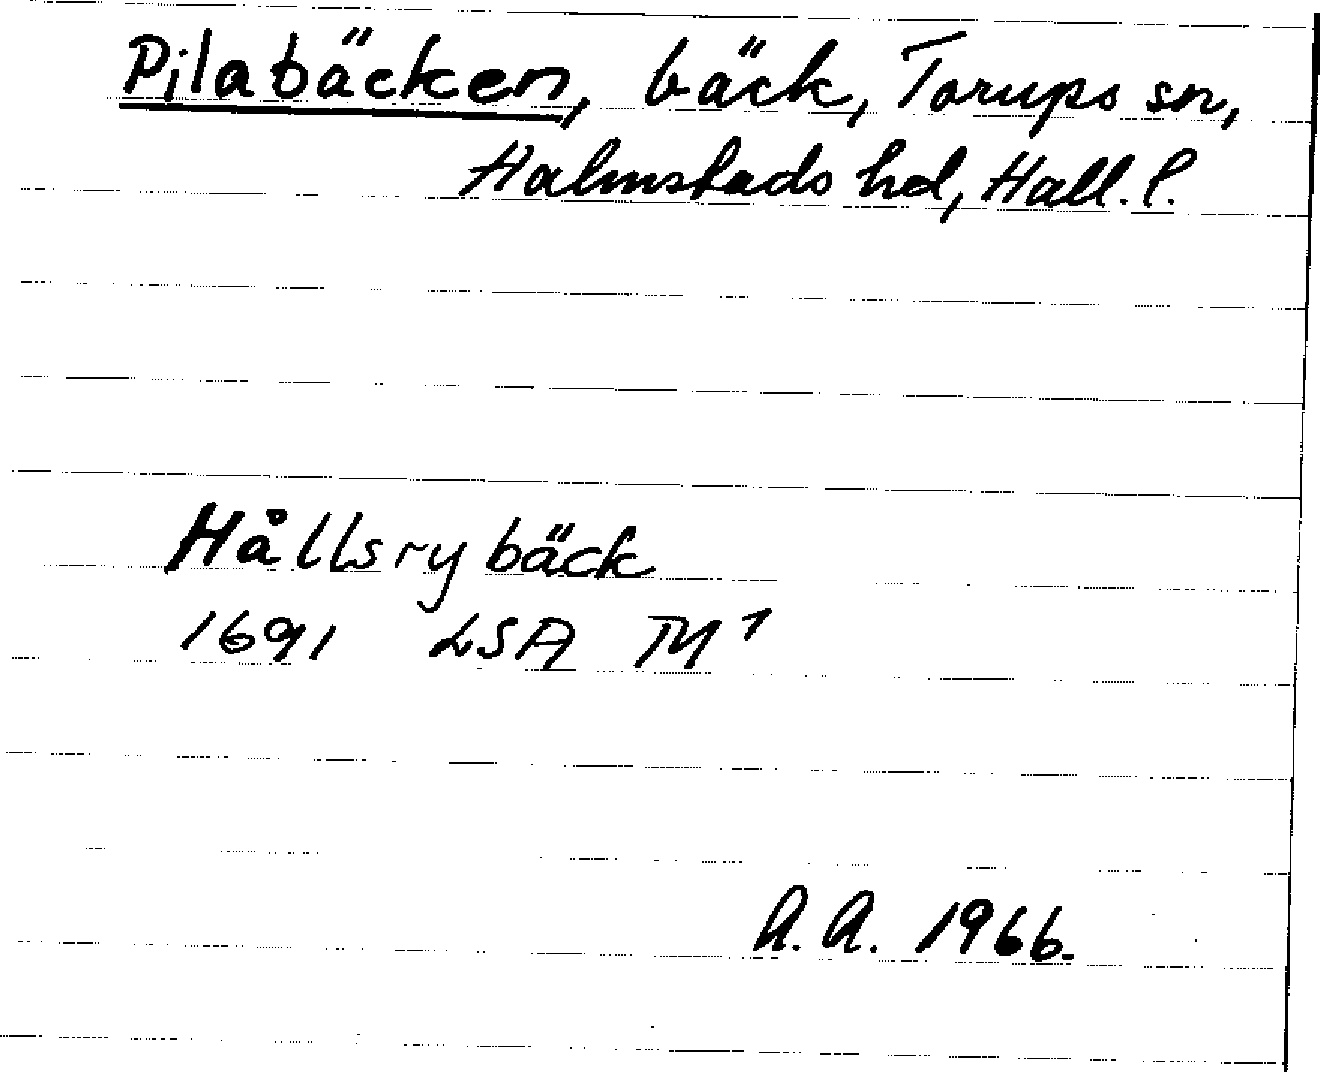 Pilabäcken, bäck, Torups sn,
Halmstads hd, Hall. l.
Hållsry bäck
1691 LSA M¹
A.A. 1966.